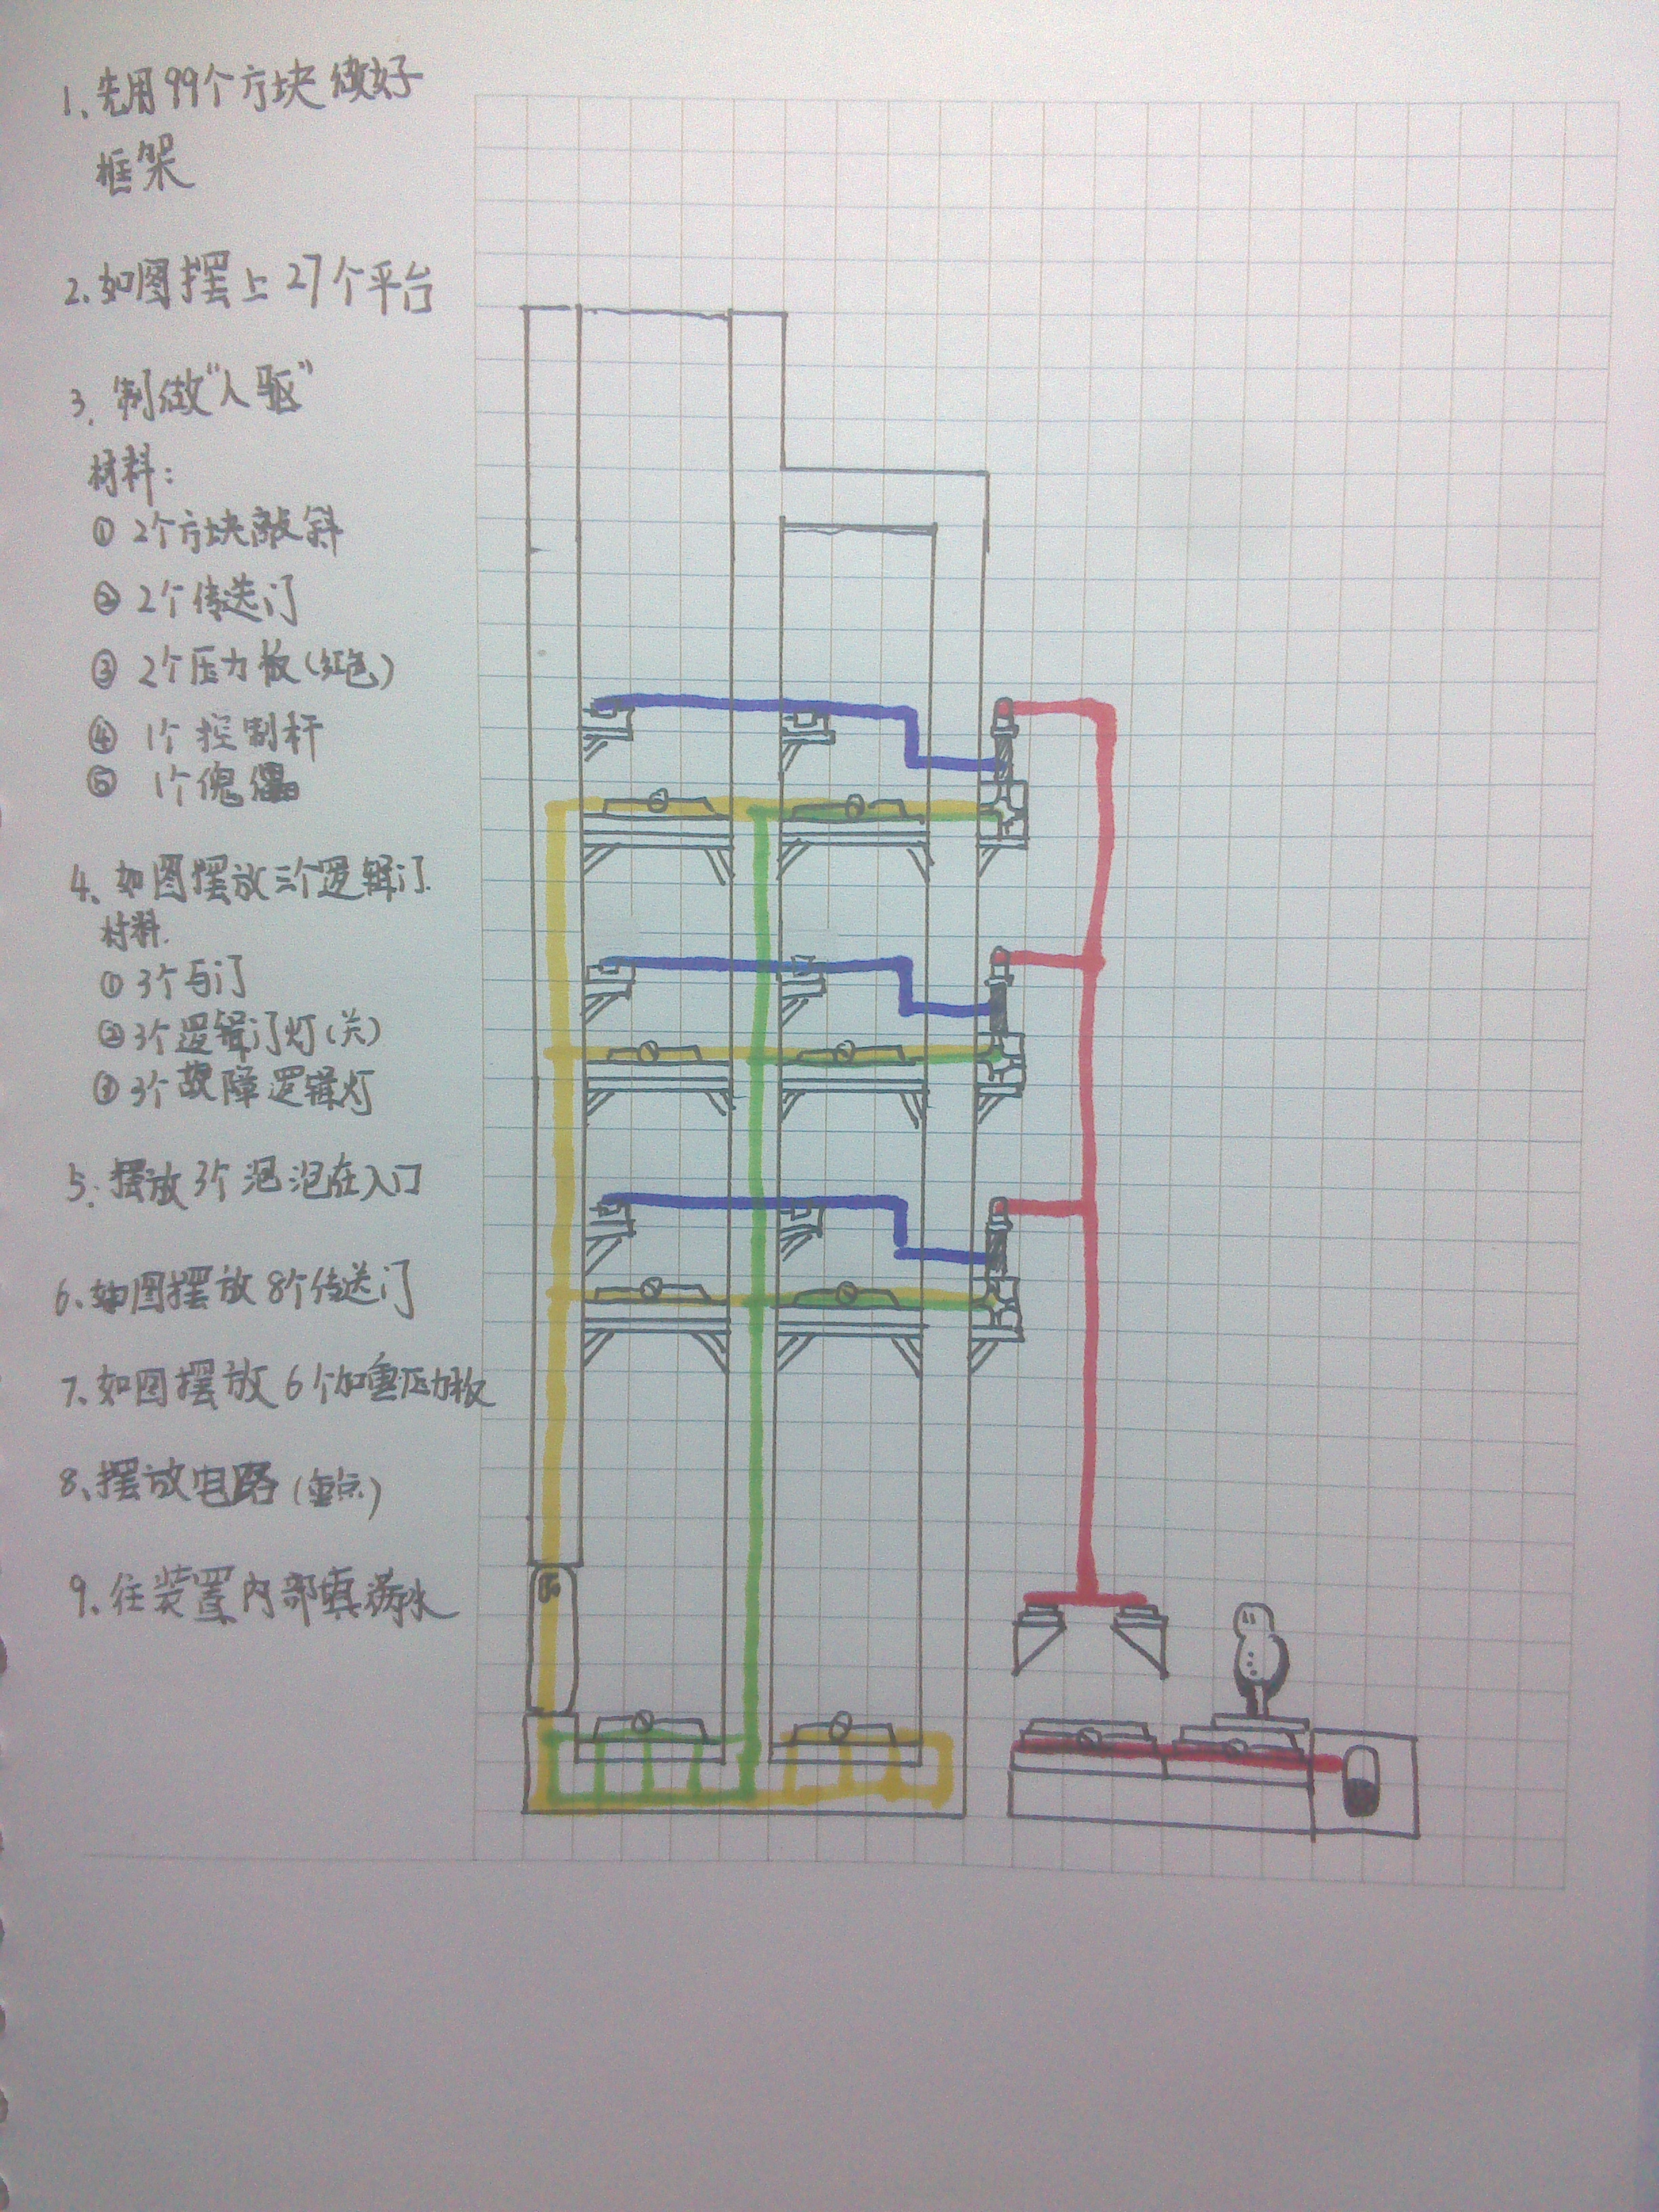 1、先用99个方块做好
框架
2、如图摆上27个平台
3、制做"人驱"
材料:
① 2个方块敲斜
② 2个传送门
③ 2个压力板(红色)
④ 1个控制杆
⑤ 1个傀儡
4、如图摆放三个逻辑门.
材料.
① 3个与门
② 3个逻辑门灯(关)
③ 3个故障逻辑灯
5、摆放3个泡泡在入门
6、如图摆放8个传送门
7、如图摆放6个加重压力板
8、摆放电路(重点)
9、往装置内部填满水